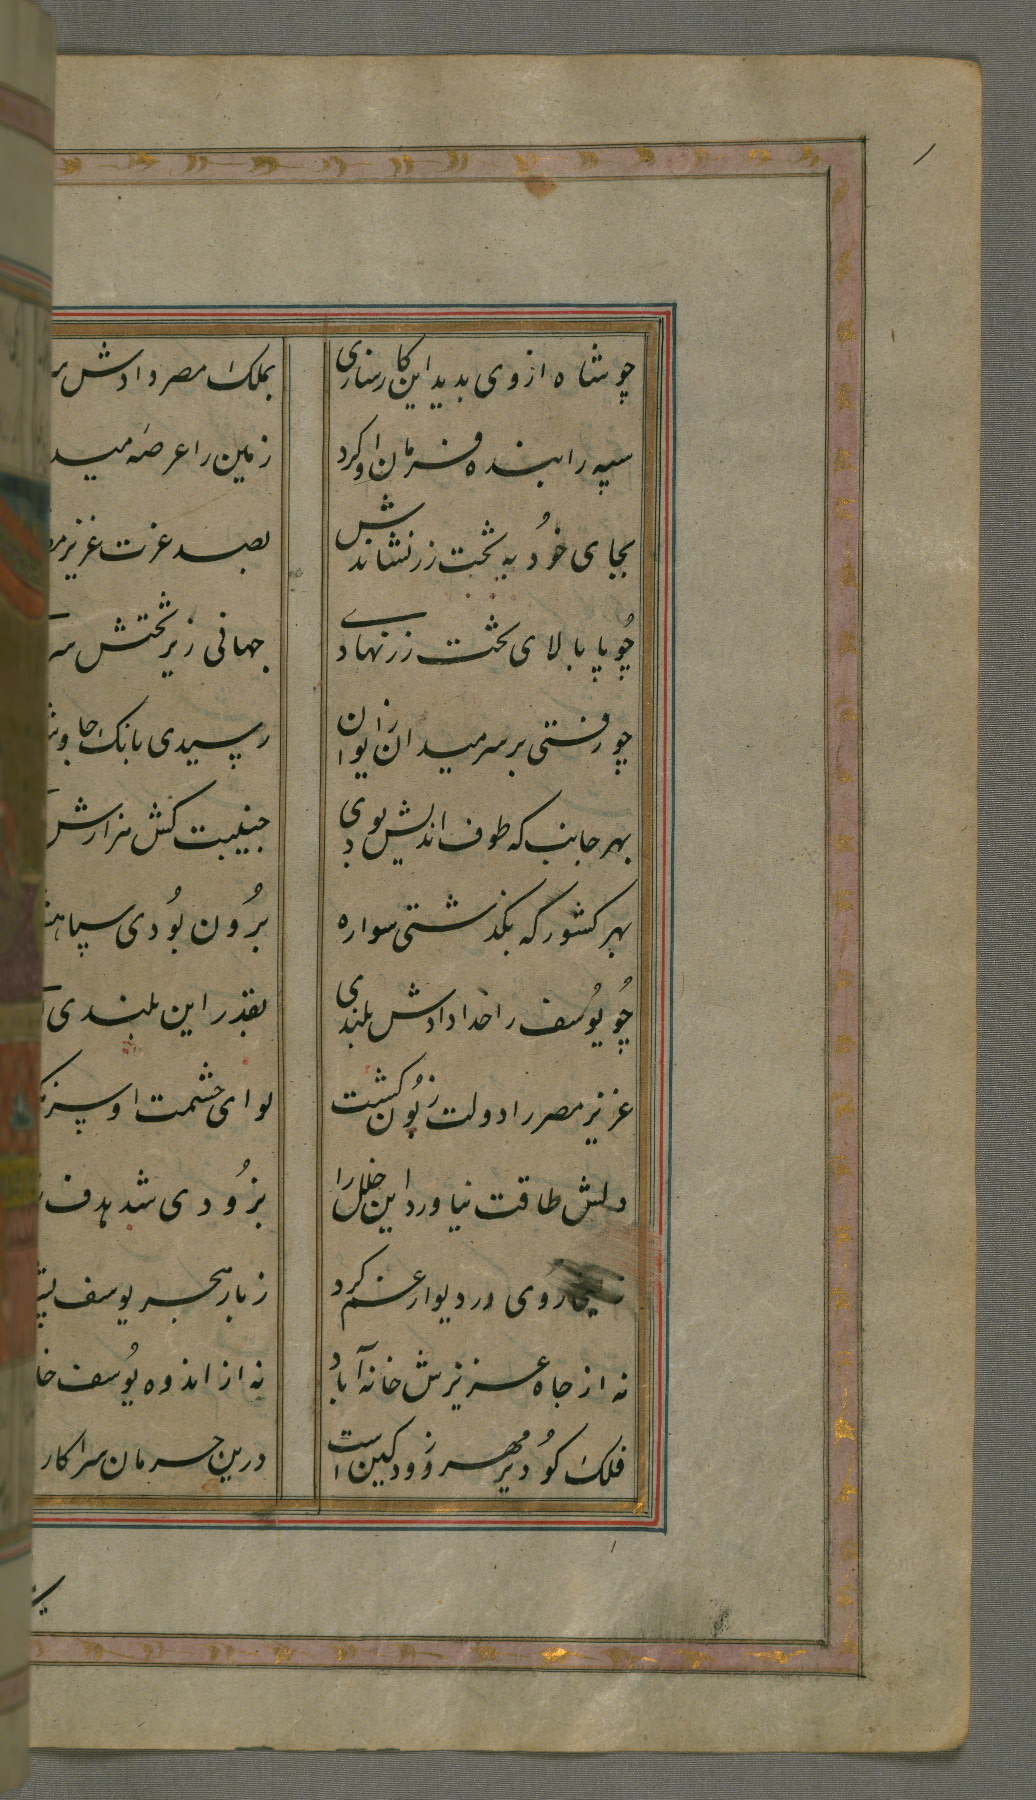 چو شاه از وی بدید این کارسازی بملک مصر دادش
سپه را بنده فرمان او کرد زمین را عرصه
بجای خود به تخت زر نشاندش بصد عزت عزیز
چو پا بالای تخت زر نهادی جهانی زیر تختش
چو رفتی بر سر میدان ز ایوان رسیدی بانک
بهر جانب که طوف اندیش بودی جنیبت کش هزارش
بهر کشور که بگذشتی سواره برون بودی سپاهش
چو یوسف را خدا دادش بلندی بقدر این بلندی
عزیز مصر را دولت زبون کشت لوای حشمت او
دلش طاقت نیاورد این خلل را بزودی شد هدف
روی در دیوار غم کرد ز بار هجر یوسف
نه از جاه عزیزش خانه آباد نه از اندوه یوسف
فلک کو دیر مهر و زود کین است درین حرمان سرا کار